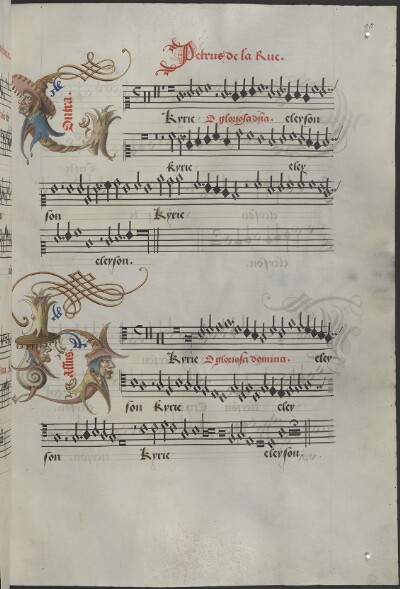 Petrus de la Rue.
Contra.
Kyrie O gloriosa dña. eleyson
Kyrie eley
son Kyrie
eleyson.
Bassus
Kyrie O gloriosa domina. eley
son Kyrie eley
son Kyrie eleyson.